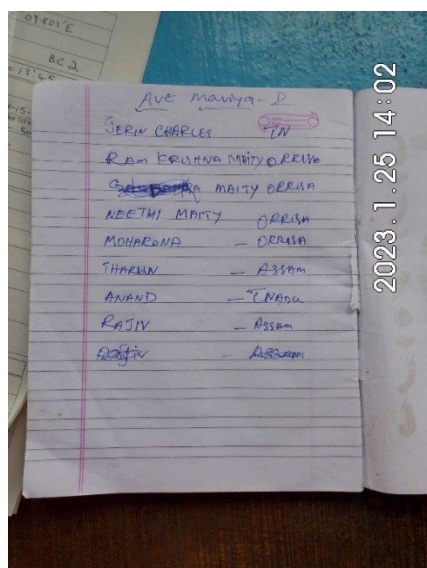 09.601'E
BC 2
Ave Mariya - D
JERIN CHARLES TN
RAM KRISHNA MAITY ORRISA
MAITY ORRISA
NEETHI MAITY ORRISA
MOHARONA - ORRISA
THARUN - ASSAM
ANAND - TNADU
RAJIV - Assam
Rajiv - Assam
2023.1.25 14:02